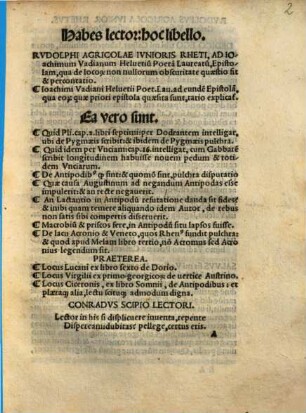 2
Habes lector: hoc libello.
RVDOLPHI AGRICOLAE IVNIORIS RHETI, AD IO
achimum Vadianum Heluetiũ Poetã Laureatũ, Episto
lam, qua de locoꝝ non nullorum obscuritate quæstio fit
& percontatio.
¶ Ioachimi Vadiani Heluetii Poet. Lau. ad eundẽ Epistolã,
qua eoꝝ quæ priori epistola quæsita sunt, ratio explicat̃.
Ea vero sunt.
¶ Quid Pli. cap. 2. libri septimi per Dodrantem intelligat,
ubi de Pygmæis scribit: & ibidem de Pygmæis pulchra.
¶ Quid idem per Vnciam cap. 16. intelligat, cum Gabbarẽ
scribit longitudinem habuisse nouem pedum & totidem
Vnciarum.
¶ De Antipodibꝰ sint & quomõ sint, pulchra disputatio
¶ Quæ causa Augustinum ad negandum Antipodas esse
impulerit: & an recte negauerit.
¶ An Lactantio in Antipodũ refutatione danda sit fides:
& inibi quam temere aliquando idem Autor, de rebus
non satis sibi compertis disseruerit.
¶ Macrobiũ & priscos fere, in Antipodũ situ lapsos fuisse.
¶ De lacu Acronio & Veneto, quos Rhenꝰ fundit pulchra:
& quod apud Melam libro tertio, nõ Acronus sed Acro
nius legendum sit.
PRAETEREA.
¶ Locus Lucani ex libro sexto de Dorio.
¶ Locus Virgilii ex primo georgicon de uertice Austrino.
¶ Locus Ciceronis, ex libro Somnii, de Antipodibus: et
plæraq̃ alia, lectu scituq̃ admodum digna.
CONRADVS SCIPIO LECTORI.
Lector in his si displicuere inuenta, repente
Dispeream: dubitas? pellege, certus eris.
A